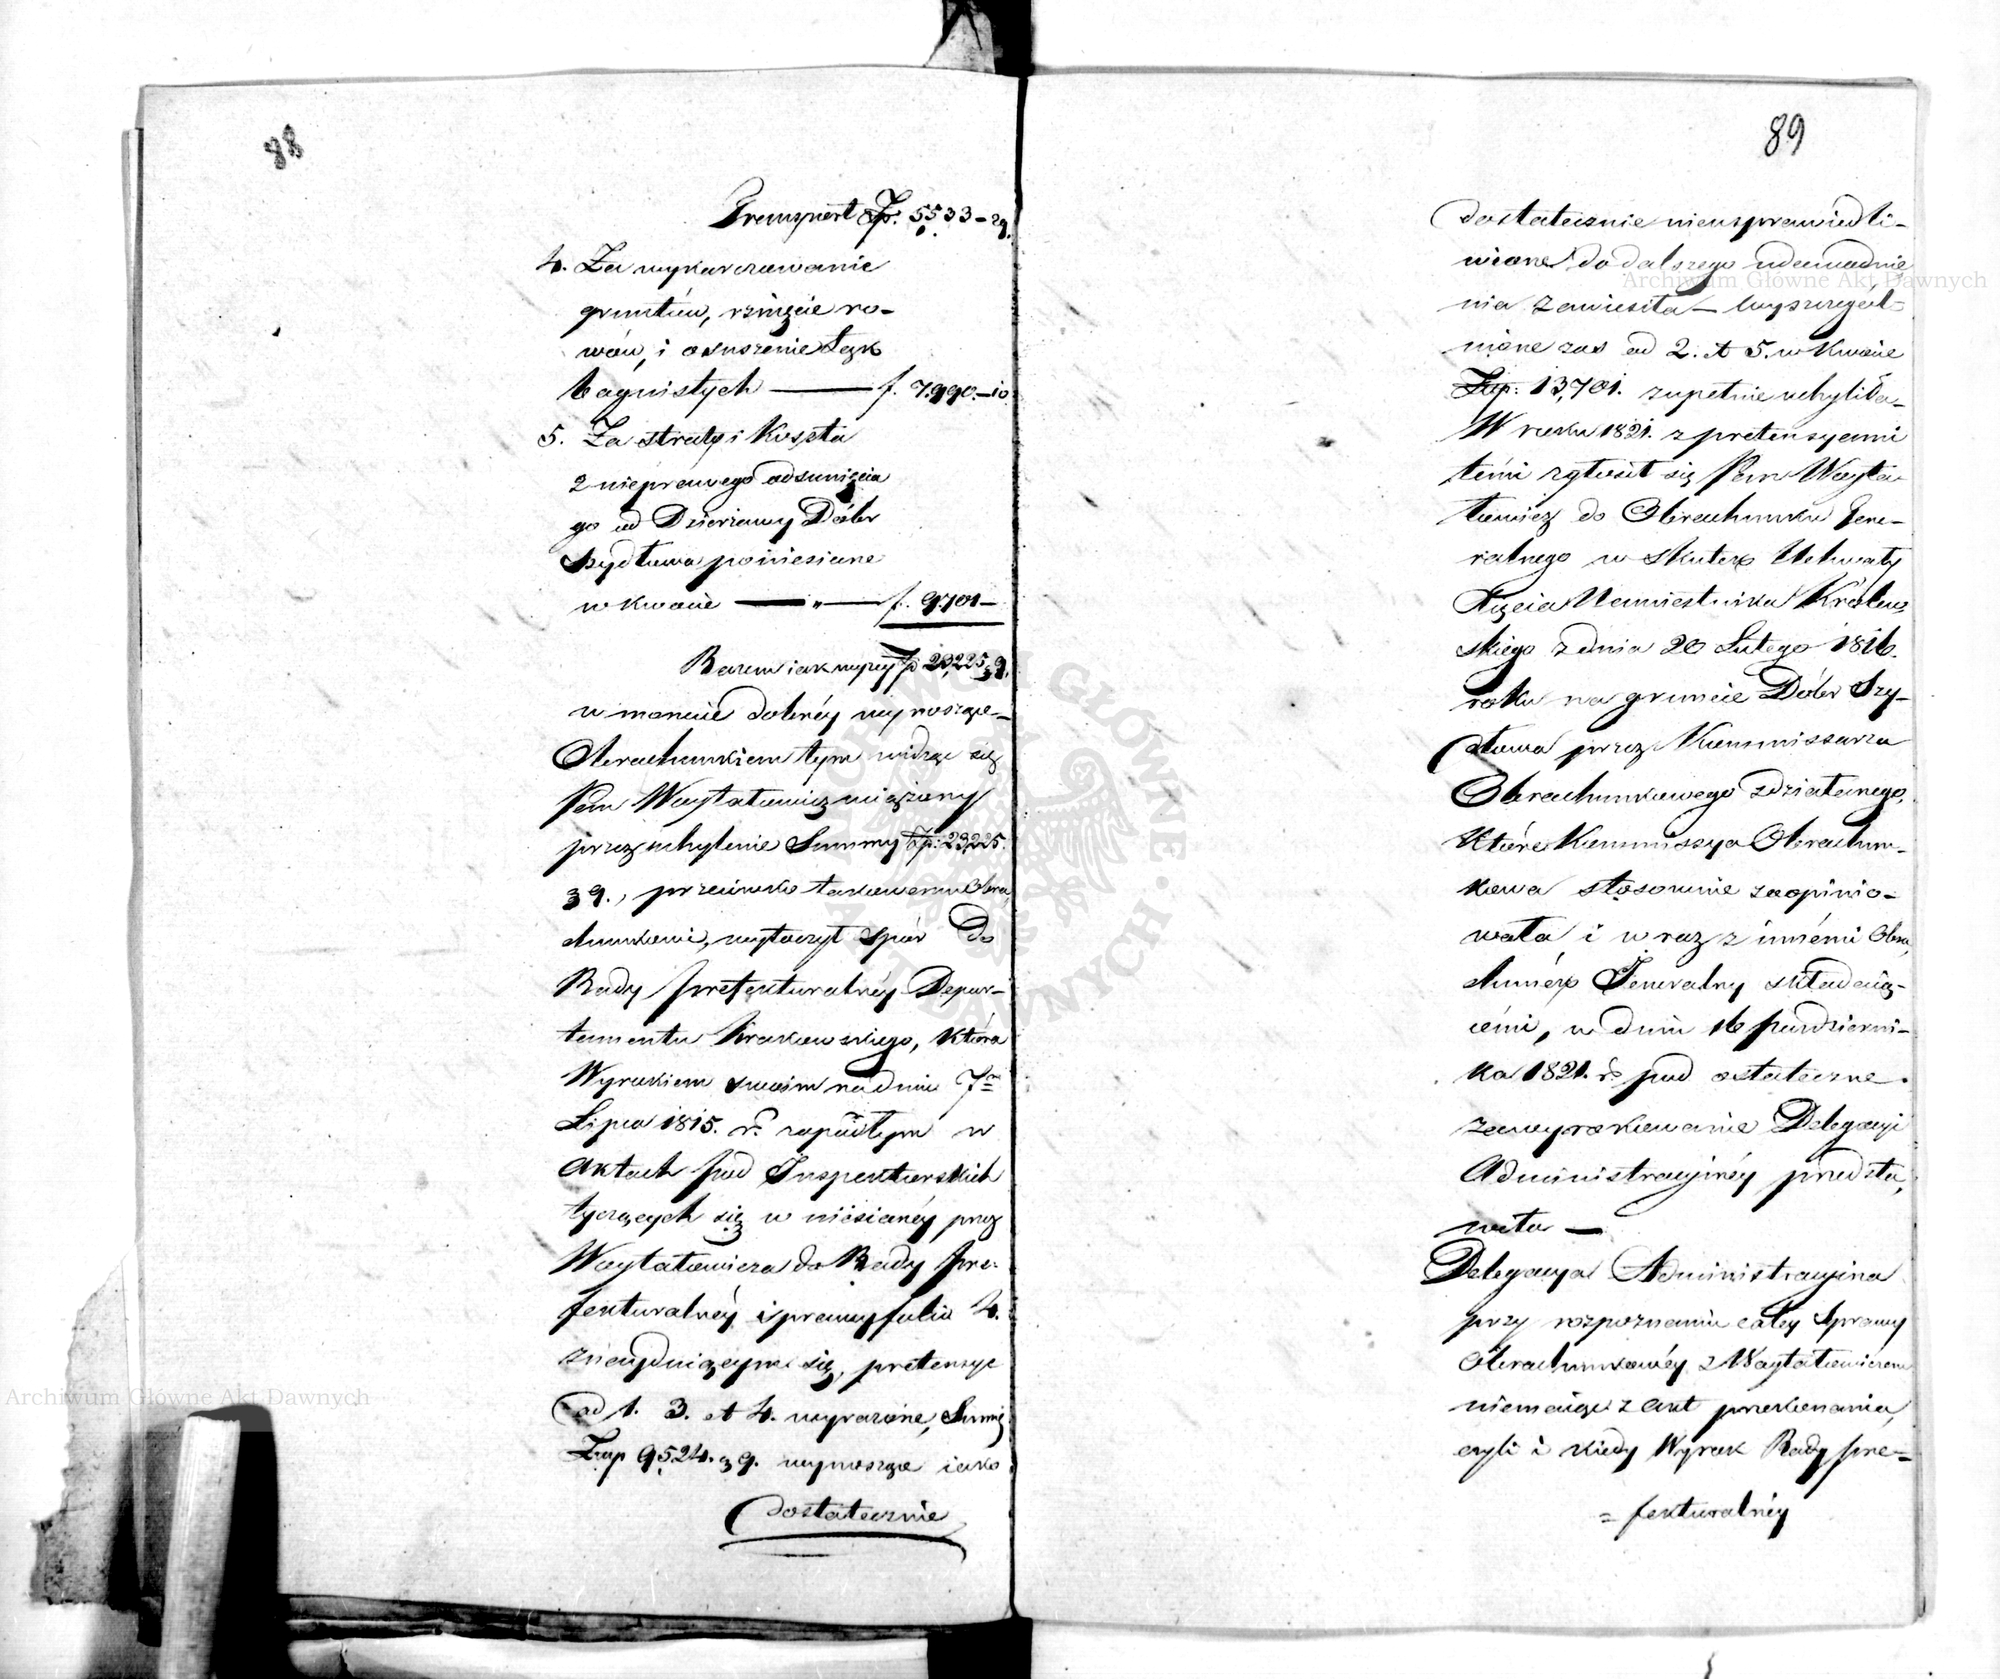 88
Transport Złp. 5533 – 29.
4. Za wykarczowanie
gruntów, rznięcie ro-
wów, i osuszenie Łąk
bagnistych — f. 7,990. – 10.
5. Za straty i Koszta
z nieprawego odsunięcia
go od Dzierżawy Dóbr
Szydłowa poniesione
w kwocie — „ — f. 9701 –
Razem iak wyżey Złp 23,225 g 9.
w monecie dobréy wynoszące –
Obrachunkiem tym widząc się
Pan Woytatowicz uciążony
przez uchylenie Summy Złp: 23,225.
g 9., przeciwko takowemu Obra,
chunkowi, wytoczył spór Do
Rady prefekturalnéy Depar-
tamentu Krakowskiego, która
Wyrokiem swoim na dniu 7m
Lipca 1815. r. zapadłym w
Aktach pod Inspektorskich
tyczących się w niesionéy przez
Woytatowicza do Rady Pre-
fekturalnéy Sprawy folio 4.
znayduiącym się, pretensye
ad 1. 3. et 4. wyrażone, Summę
Złp 9524. g 9. wynoszące iako
dostatecznie
89
dostatecznie nieusprawiedli-
wione do dalszego udowodnie
nia zawiesiła – wyszczegól-
nione zas ad 2. et 5. w kwocie
Złp: 13,701. zupełnie uchyliła –
W roku 1821. z pretensyami
temi zgłosił się Pan Woyta-
towicz do Obrachunku Jene-
ralnego w skutek Uchwały
Xięcia Namiestnika Królew-
skiego z dnia 20 Lutego 1816.
roku na gruncie Dóbr Szy-
dłowa przez Kommissarza
Obrachunkowego zdziałanego,
które Kommissya Obrachun-
kowa stosownie zaopinio-
wała i wraz z innémi Obra,
chunek Jeneralny składaią-
cémi, w dniu 16 Październi-
ka 1821. r. pod ostateczne
zawyrokowanie Delegacyi
Administracyinéy przedsta,
wiła —
Delegacya Administracyina
przy rozpoznaniu całey Sprawy
Obrachunkowéy z Woytatowiczem
niemaiąc z akt przekonania,
czyli i kiedy Wyrok Rady Pre-
= fekturalnéy
Archiwum Główne Akt Dawnych
Archiwum Główne Akt Dawnych